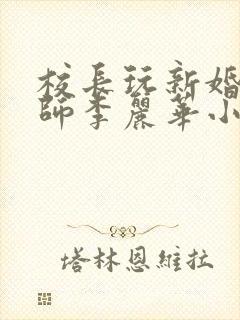 校長玩新婚
師李麗華小
塔林恩維拉